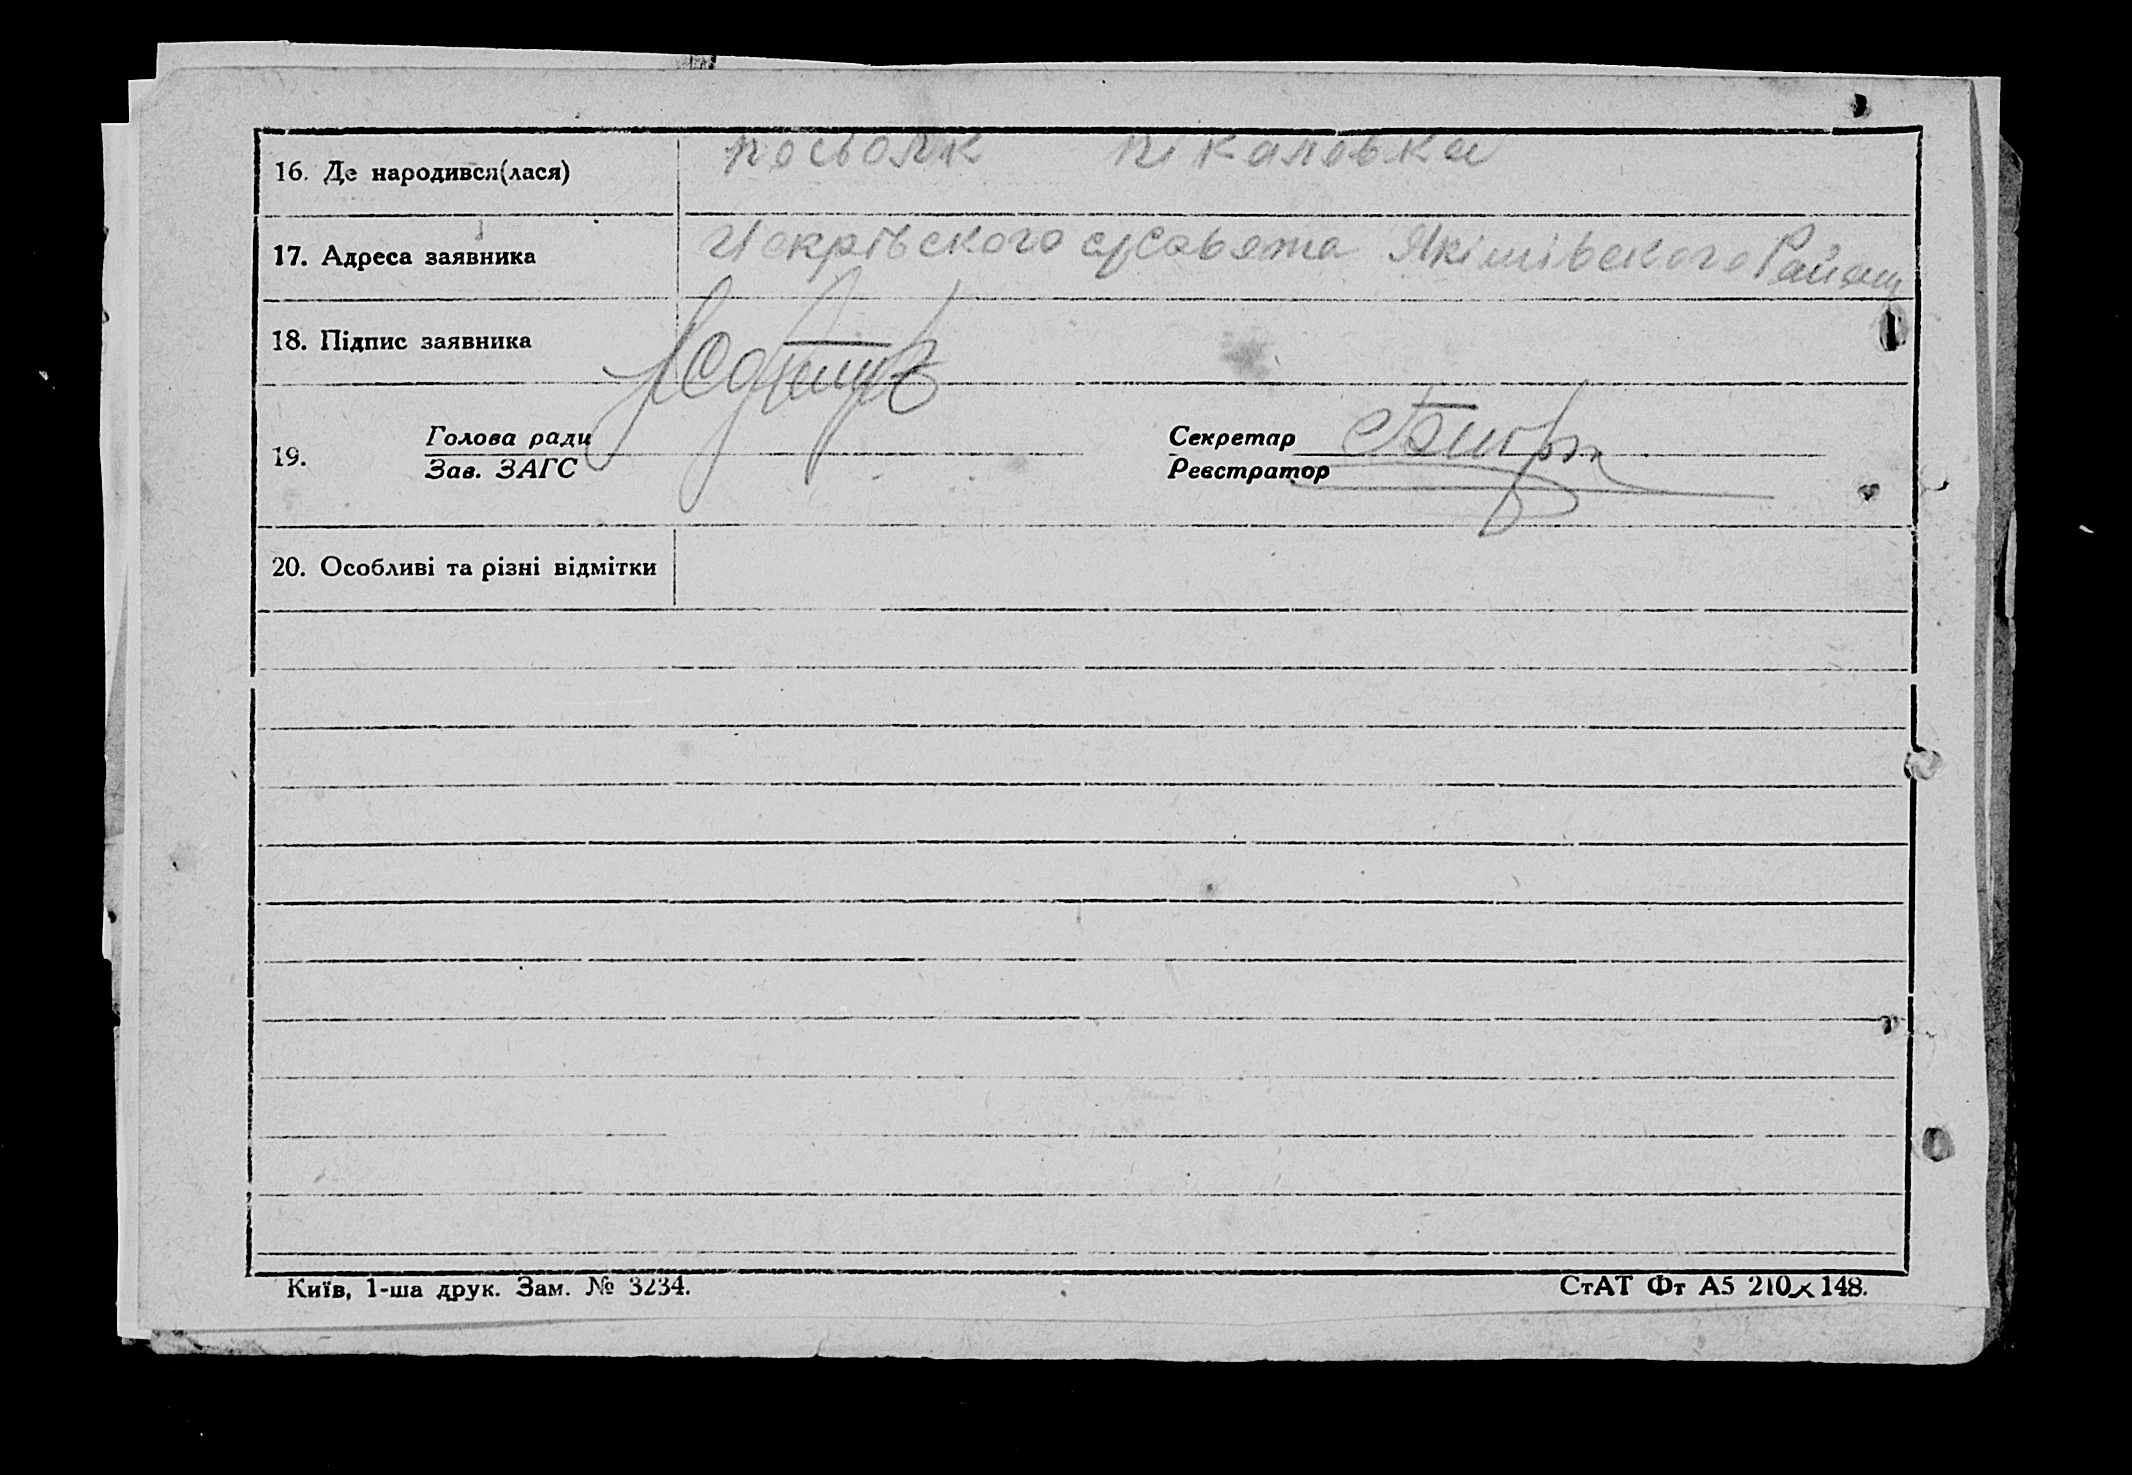 16. Де народився(лася) посьолк Пікаловка
17. Адреса заявника с/совета Якімівского Району
18. Підпис заявника
19. Голова ради Секретар
Зав. ЗАГС Реєстратор
20. Особливі та різні відмітки
Київ, 1-ша друк. Зам. № 3234. СтАТ Фт А5 210×148.